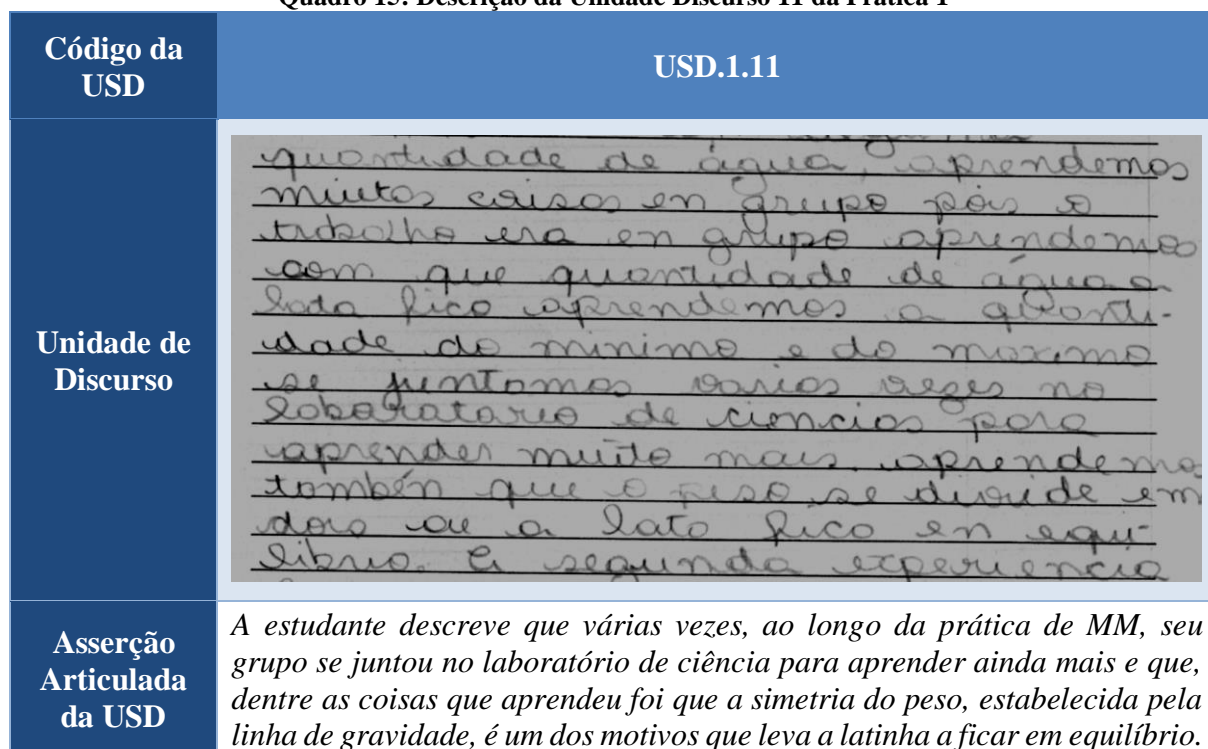 Quadro 15: Descrição da Unidade Discurso 11 da Prática 1
Código da
USD
USD.1.11
Unidade de
Discurso
quantidade de água, aprendemos
muitos coisas en grupo pois o
trabalho era en grupo aprendemos
com que quantidade de água a
lata fica aprendemos a quanti-
dade do minimo e do maximo
se juntamos varias vezes no
laboratario de ciencias para
aprender muito mais. aprendemos
tambén que o peso se divide em
dois ai a lata fica en equi-
librio. A segunda experiencia
Asserção
Articulada
da USD
A estudante descreve que várias vezes, ao longo da prática de MM, seu
grupo se juntou no laboratório de ciência para aprender ainda mais e que,
dentre as coisas que aprendeu foi que a simetria do peso, estabelecida pela
linha de gravidade, é um dos motivos que leva a latinha a ficar em equilíbrio.